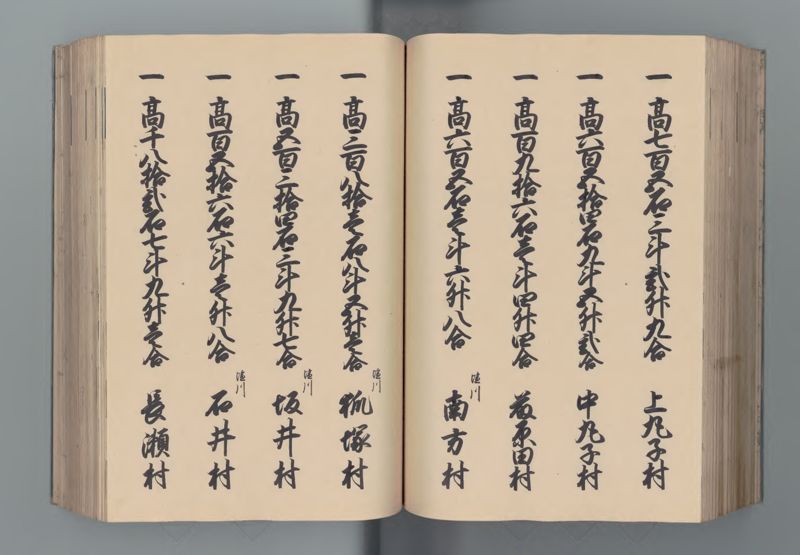 一 髙七百五石三斗弐升九合 上丸子村
一 髙六百五拾四石九斗五升弐合 中丸子村
一 髙百九拾六石壱斗四升四合 藤原田村
一 髙六百五石壱斗六升八合 塩川 南方村
一 髙三百八拾壱石八斗五升壱合 塩川 狐塚村
一 髙五百三拾四石三斗九升七合 塩川 坂井村
一 髙百五拾六石六斗壱升八合 塩川 石井村
一 髙千八拾弐石七斗九升壱合 長瀬村